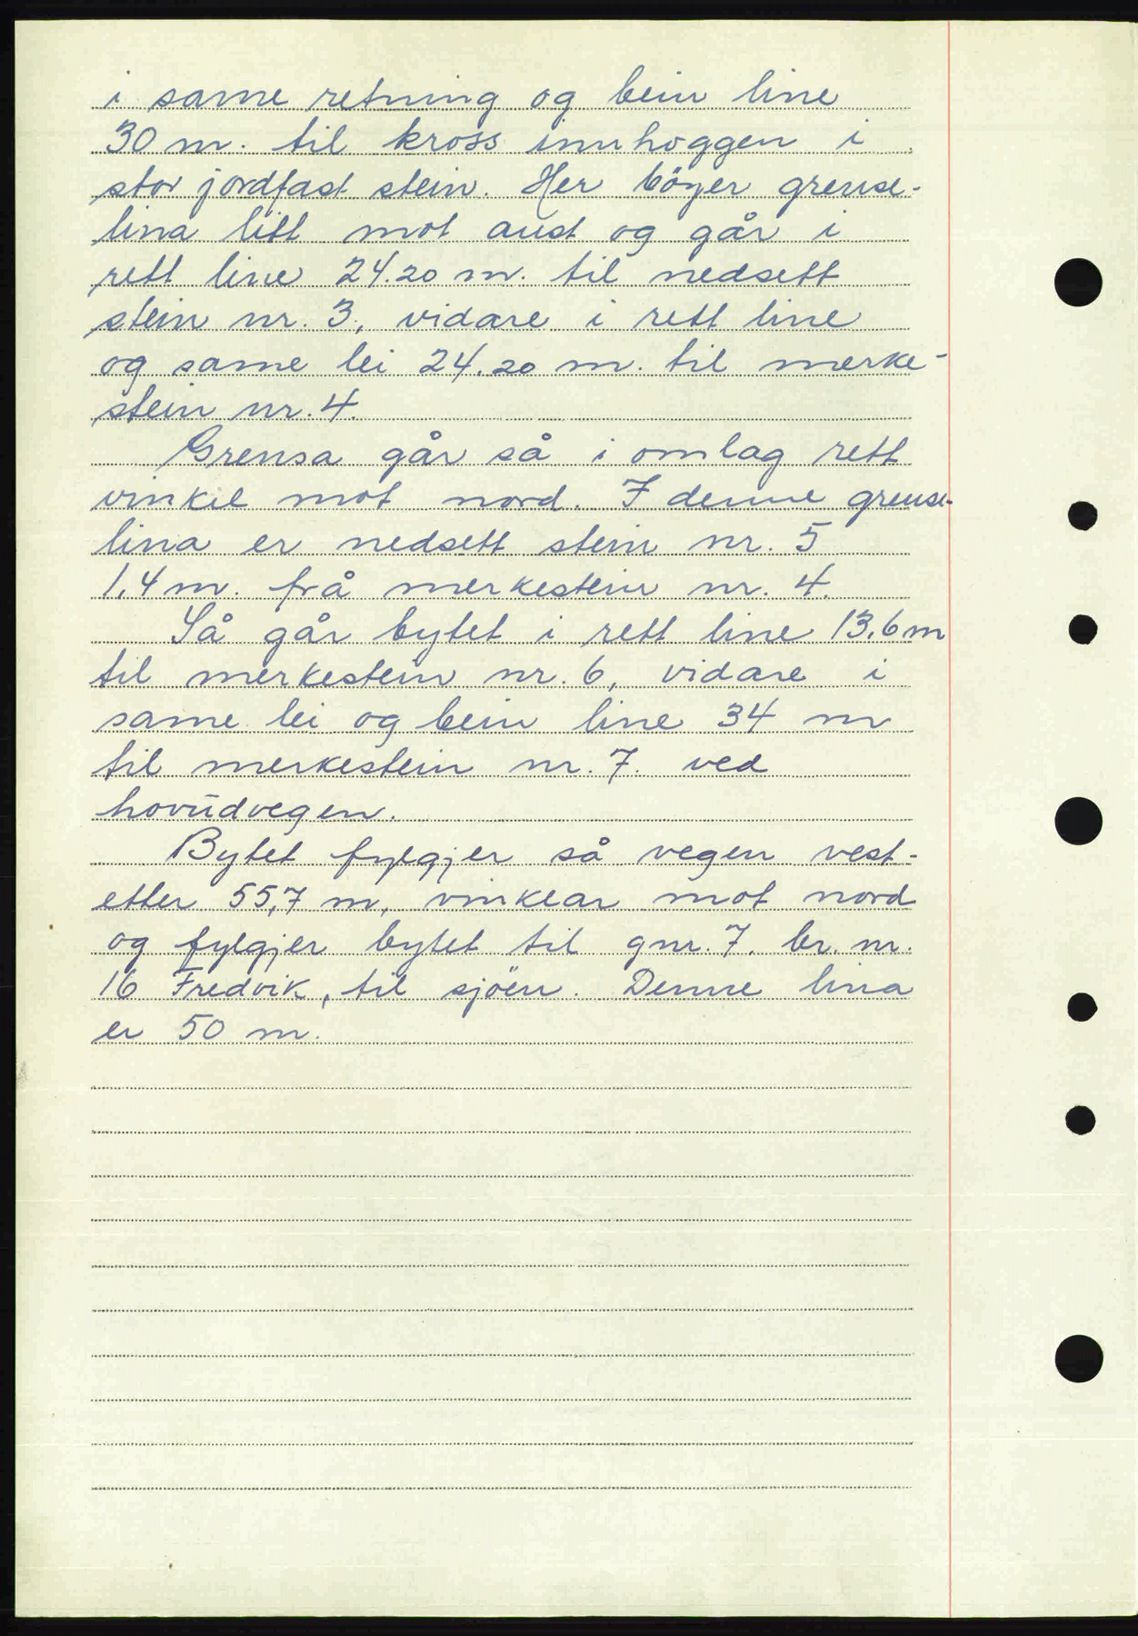 i same retning og bein line
30 m. til kross innhoggen i
stor jordfast stein. Her böyer grense-
lina litt mot aust og går i
rett line 24.20 m. til nedsett
stein nr. 3, vidare i rett line
og same lei 24.20 m. til merke-
stein nr. 4.
Grensa går så i omlag rett
vinkel mot nord. I denne grense-
lina er nedsett stein nr. 5
1,4 m. frå merkestein nr. 4.
Så går bytet i rett line 13,6 m
til merkestein nr. 6, vidare i
same lei og bein line 34 m
til merkestein nr. 7. ved
hovudvegen.
Bytet fylgjer så vegen vest-
etter 55,7 m, vinklar mot nord
og fylgjer bytet til gnr. 7. br. nr.
16 Fredvik, til sjöen. Denne lina
er 50 m.